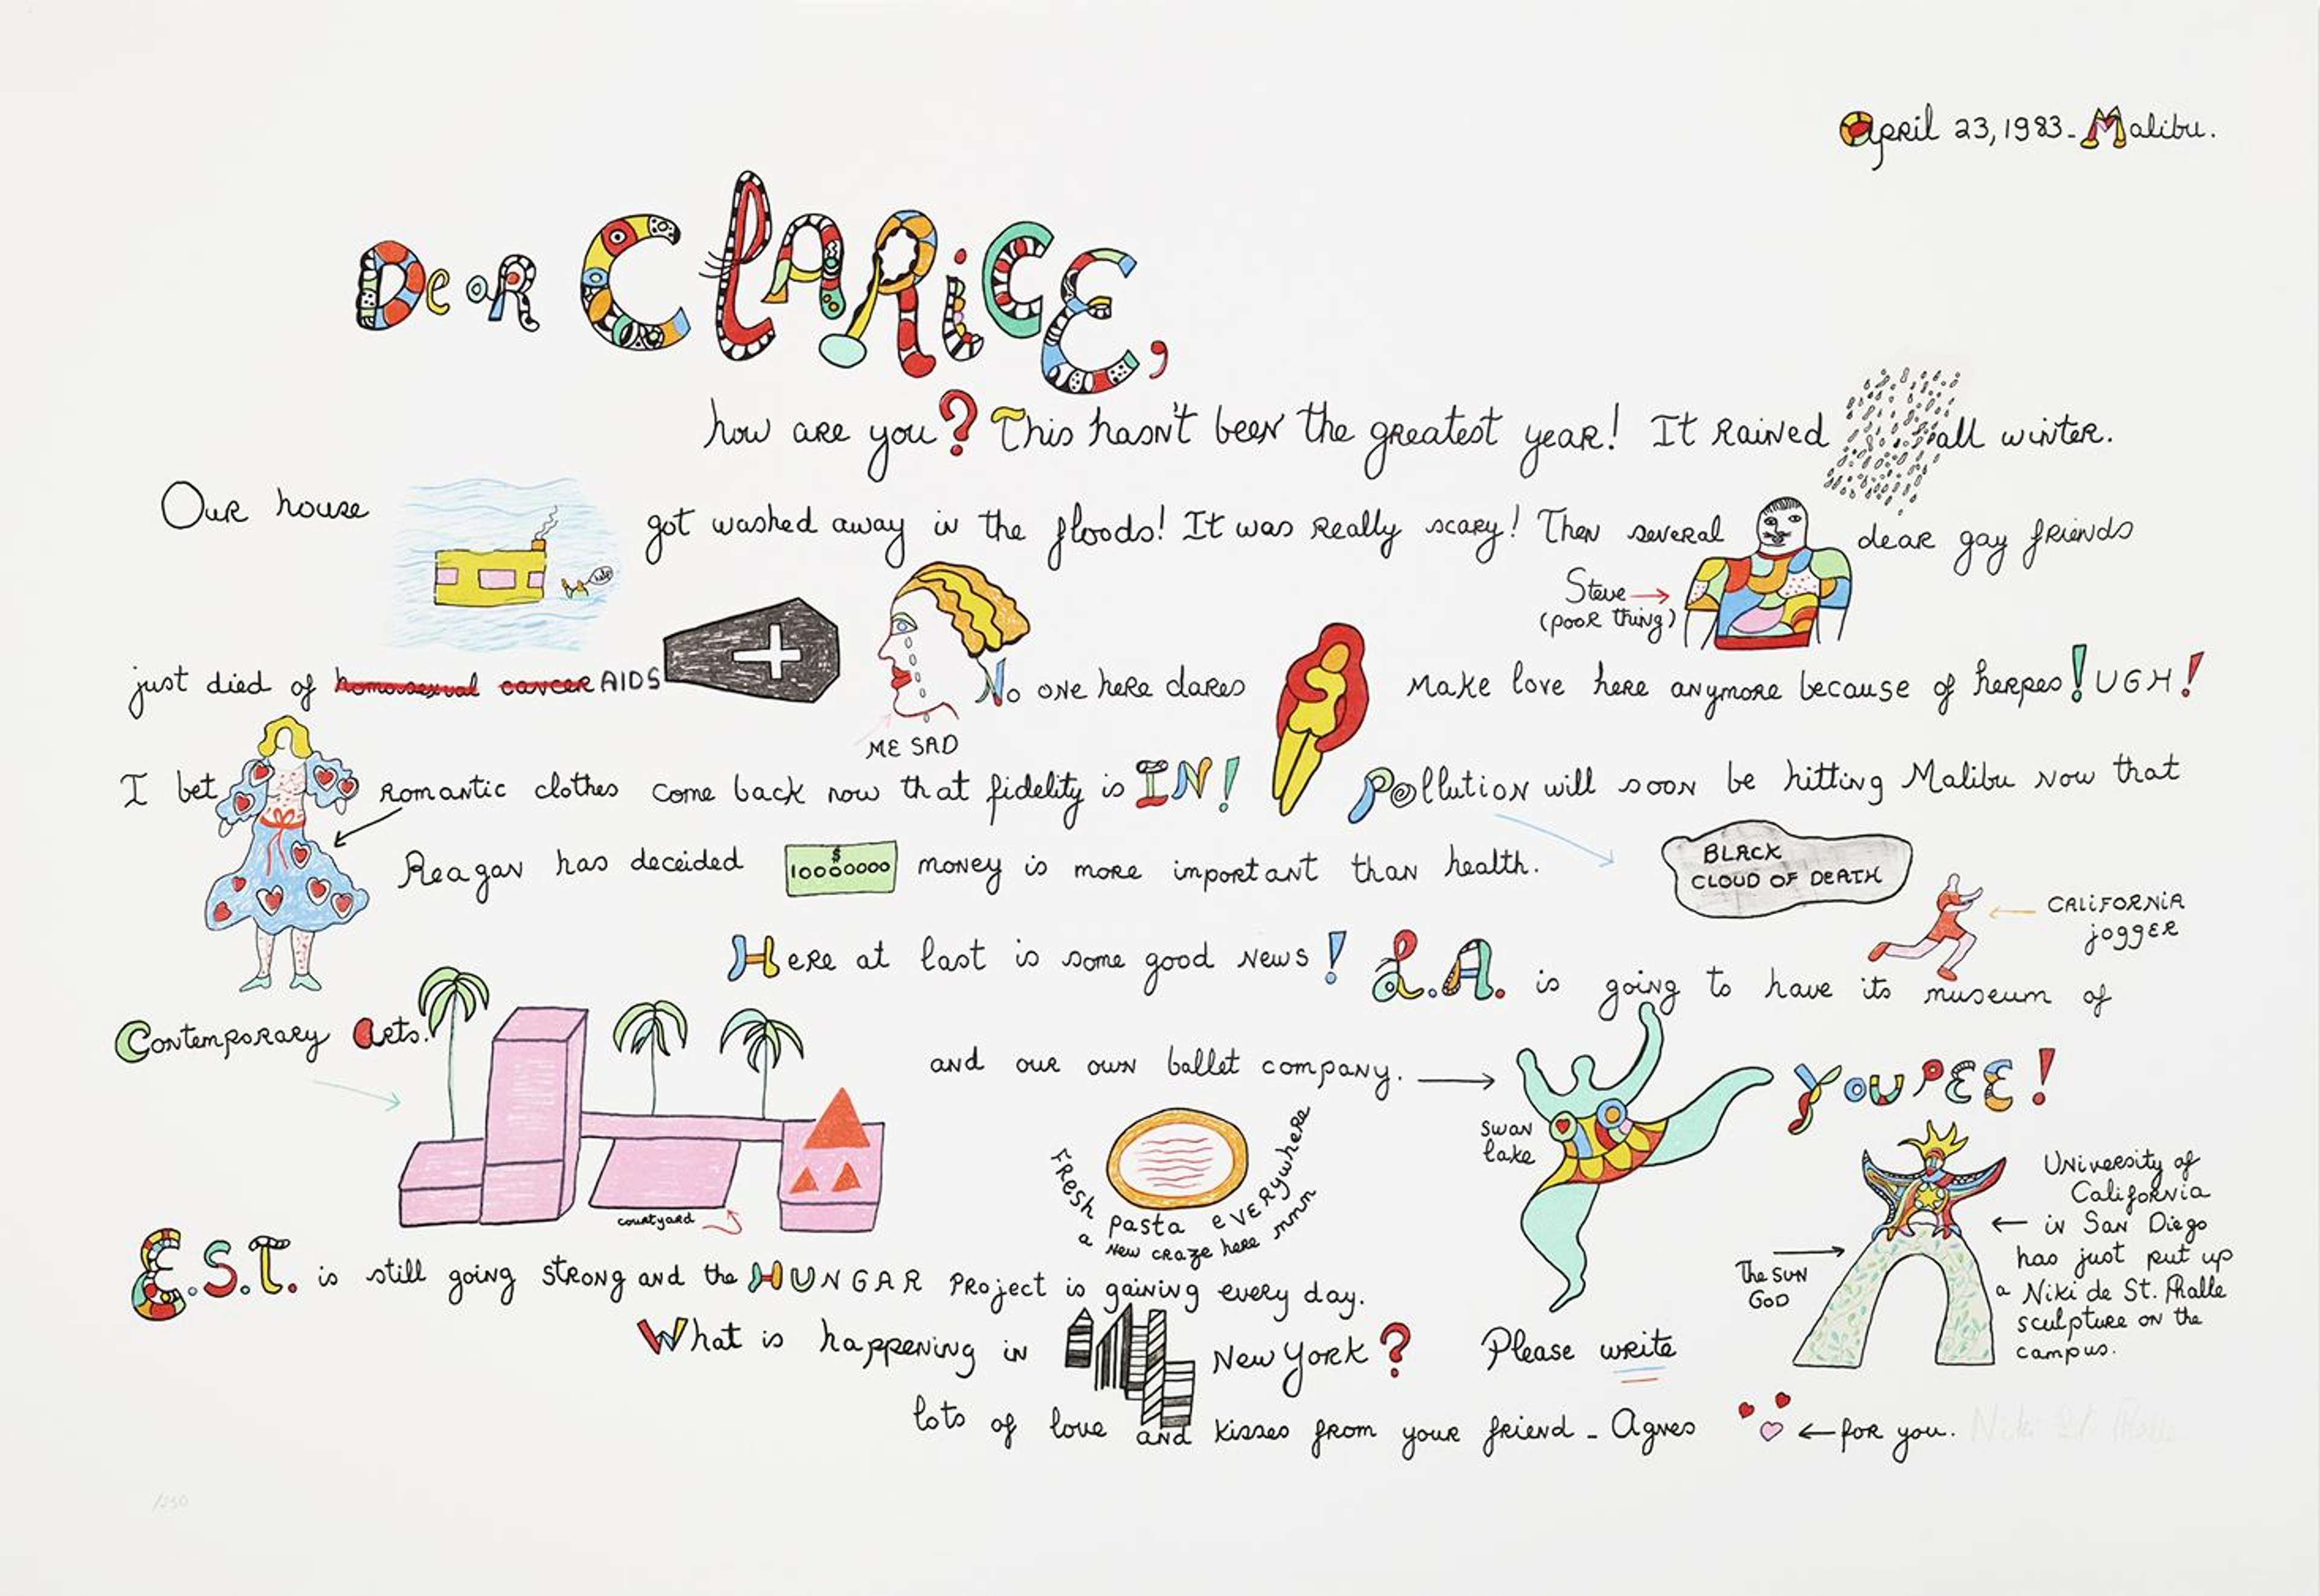 April 23, 1983 - Malibu.
Dear Clarice,
how are you? This hasn't been the greatest year! It rained all winter.
Our house got washed away in the floods! It was really scary! Then several dear gay friends
help
Steve
(poor thing)
just died of homosexual cancer AIDS No one here dares make love here anymore because of herpes! UGH!
ME SAD
I bet romantic clothes come back now that fidelity is IN! Pollution will soon be hitting Malibu now that
Reagan has deceided $ 10000000 money is more important than health.
BLACK
CLOUD OF DEATH
CALiFORNiA
jogger
Here at last is some good news! L.A. is going to have its museum of
Contemporary Arts. and our own ballet company. YOUPEE!
courtyard
Fresh pasta everywhere
a new craze here mmm
swan
lake
The SUN
GOD
University of
California
in San Diego
has just put up
a Niki de St. Phalle
sculpture on the
campus.
E.S.T. is still going strong and the HUNGAR Project is gaining every day.
What is happening in New York? Please write
lots of love and kisses from your friend - Agnes for you.
Niki St. Phalle
/250